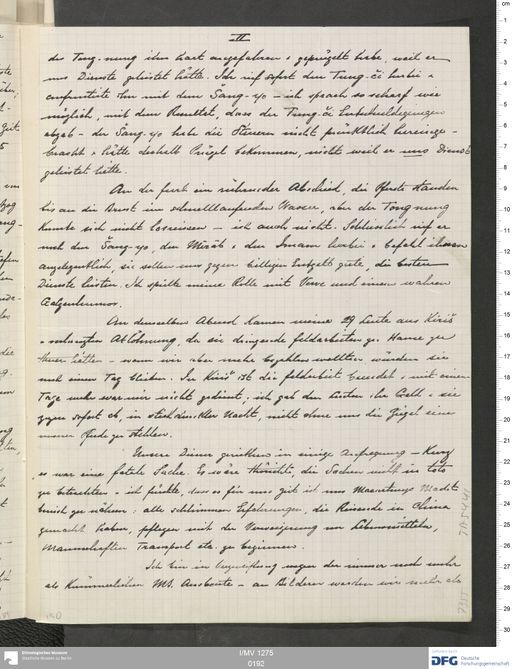 II
der Tong-nung ihn hart angefahren & geprügelt habe, weil er
uns Dienste geleistet hätte. Ich rief sofort den Tung-či herbei &
confrontirte ihn mit dem Sang-yo – ich sprach so scharf wie
möglich, mit dem Resultat, dass der Tung-či Entschuldigungen
abgab – der Sang-yo habe die Steuern nicht pünktlich herein ge-
bracht & hätte deshalb Prügel bekommen, nicht weil er uns Dienste
geleistet hätte.
An der furt ein rührender Abschied, die Pferde standen
bis an die Brust im schnellaufenden Wasser, aber der Tong nung
konnte sich nicht losreissen – ich auch nicht. Schliesslich rief er
noch den Sang-yo, den Mirab & den Imam herbei & befahl ihnen
angelegentlich, sie sollen uns gegen billigen Entgelt gute, die besten
Dienste leisten. Ich spielte meine Rolle mit Verve und einem wahren
Galgenhumor.
An demselben Abend kamen meine 29 Leute aus Kiriš
& verlangten Ablöhnung, da sie dringende feldarbeiten zu Hause zu
thuen hätte – wenn wir aber mehr bezahlen wollten würden sie
noch einen Tag bleiben. In Kiriš ist die feldarbeit beendet, mit einem
Tage mehr war mir nicht gedient, ich gab den Leuten ihr Geld & sie
zogen sofort ab, in stockdunkler Nacht, nicht ohne uns die Zügel eines
unserer Pferde zu stehlen.
Unsere Diener geriethen in einige Aufregung – Kurz
es war eine fatale Sache. Es wäre thöricht, die Sachen nicht in toto
zu betrachten & ich fürchte, dass es für uns Zeit ist uns
zu nähern: alle schlimmen Erfahrungen, die Reisende in China
gemacht haben, pflegen mit der Verweigerung von Lebensmitteln,
Mannschaften Transport etc. zu beginnen.
Ich bin in Verzweiflung wegen der immer noch mehr
als kümmerlichen MS. Ausbeute – an Bildern werden wir mehr als
TA 5441
I/MV 1275
0192
Ethnologisches Museum
Staatliche Museen zu Berlin
DFG
Deutsche
Forschungsgemeinschaft